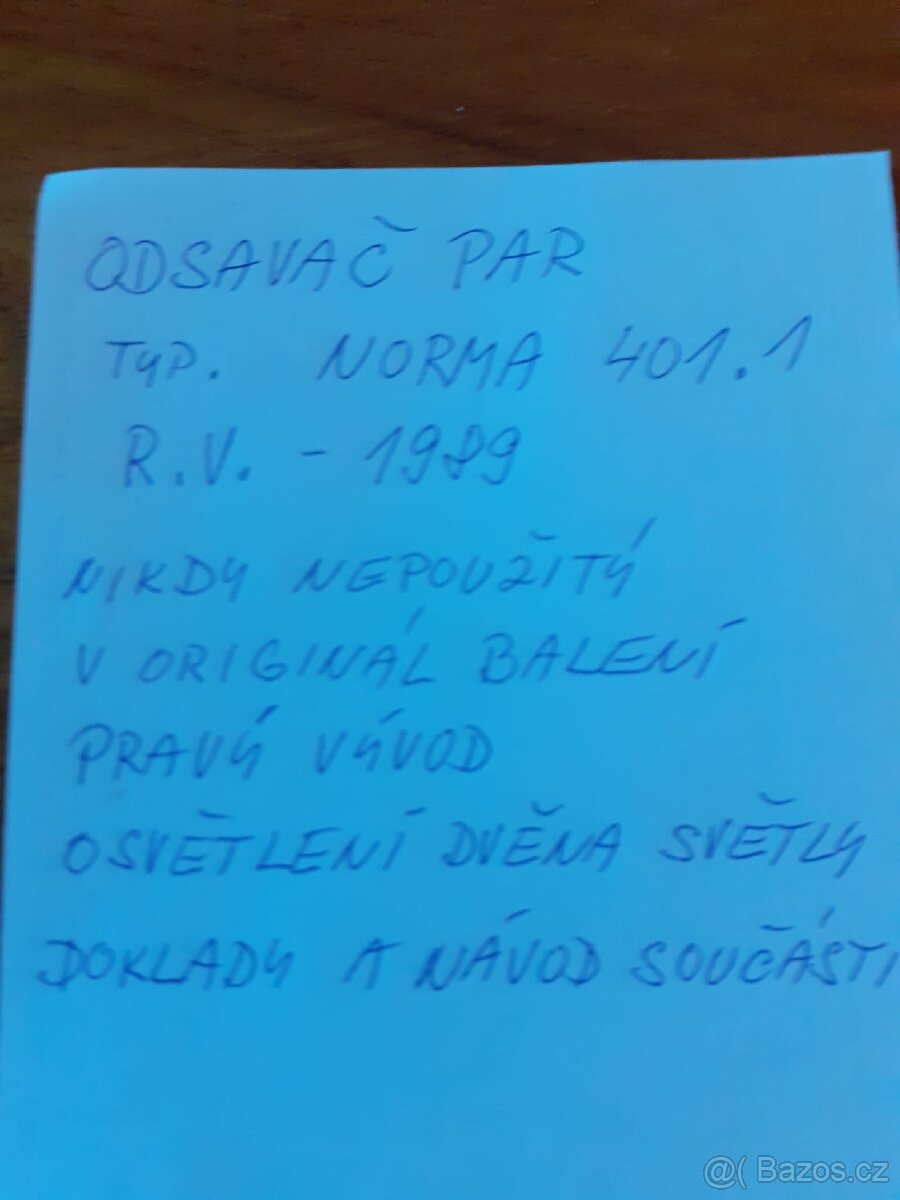 ODSAVAČ PAR
TYP. NORMA 401.1
R.V. - 1989
NIKDY NEPOUŽITÝ
V ORIGINÁL BALENÍ
PRAVÝ VÝVOD
OSVĚTLENÍ DVĚMA SVĚTLY
DOKLADY A NÁVOD SOUČÁSTI
@( Bazos.cz